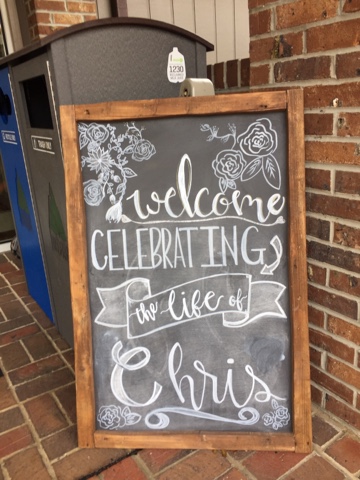 1230
welcome
CELEBRATING
the life of
Chris